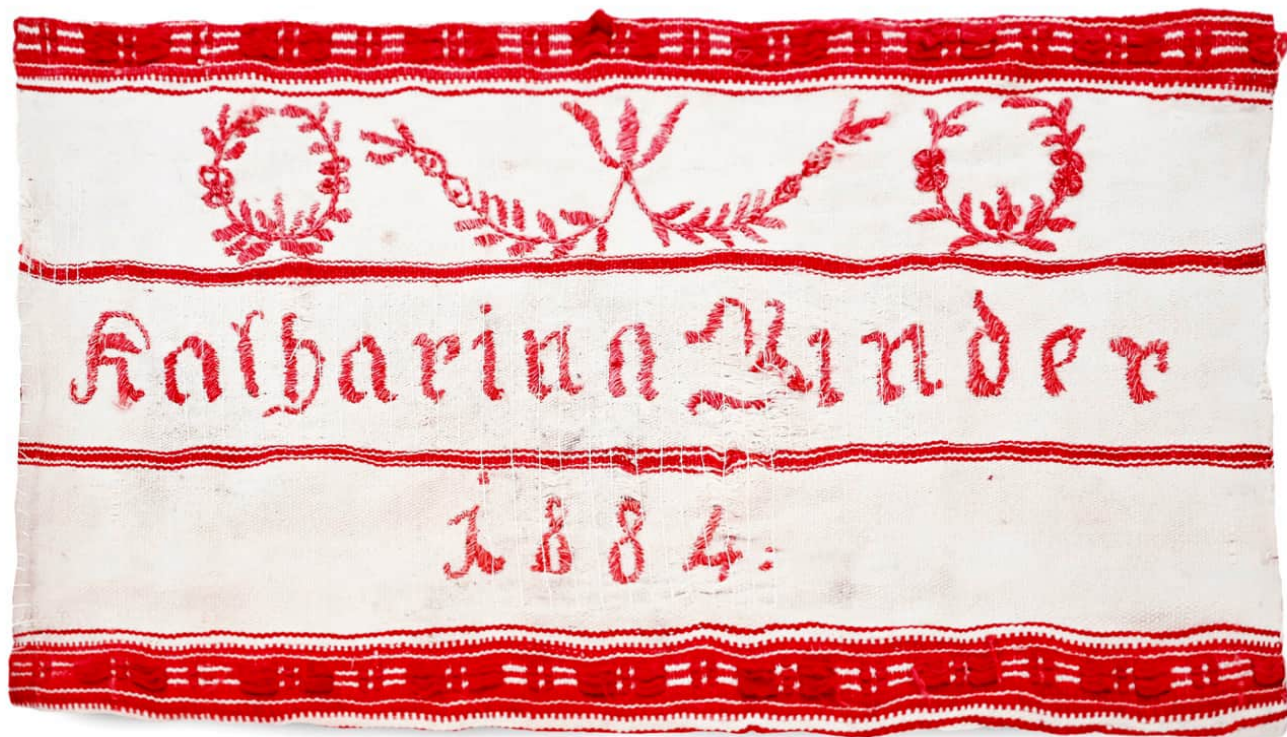 Katharina Binder
1884.